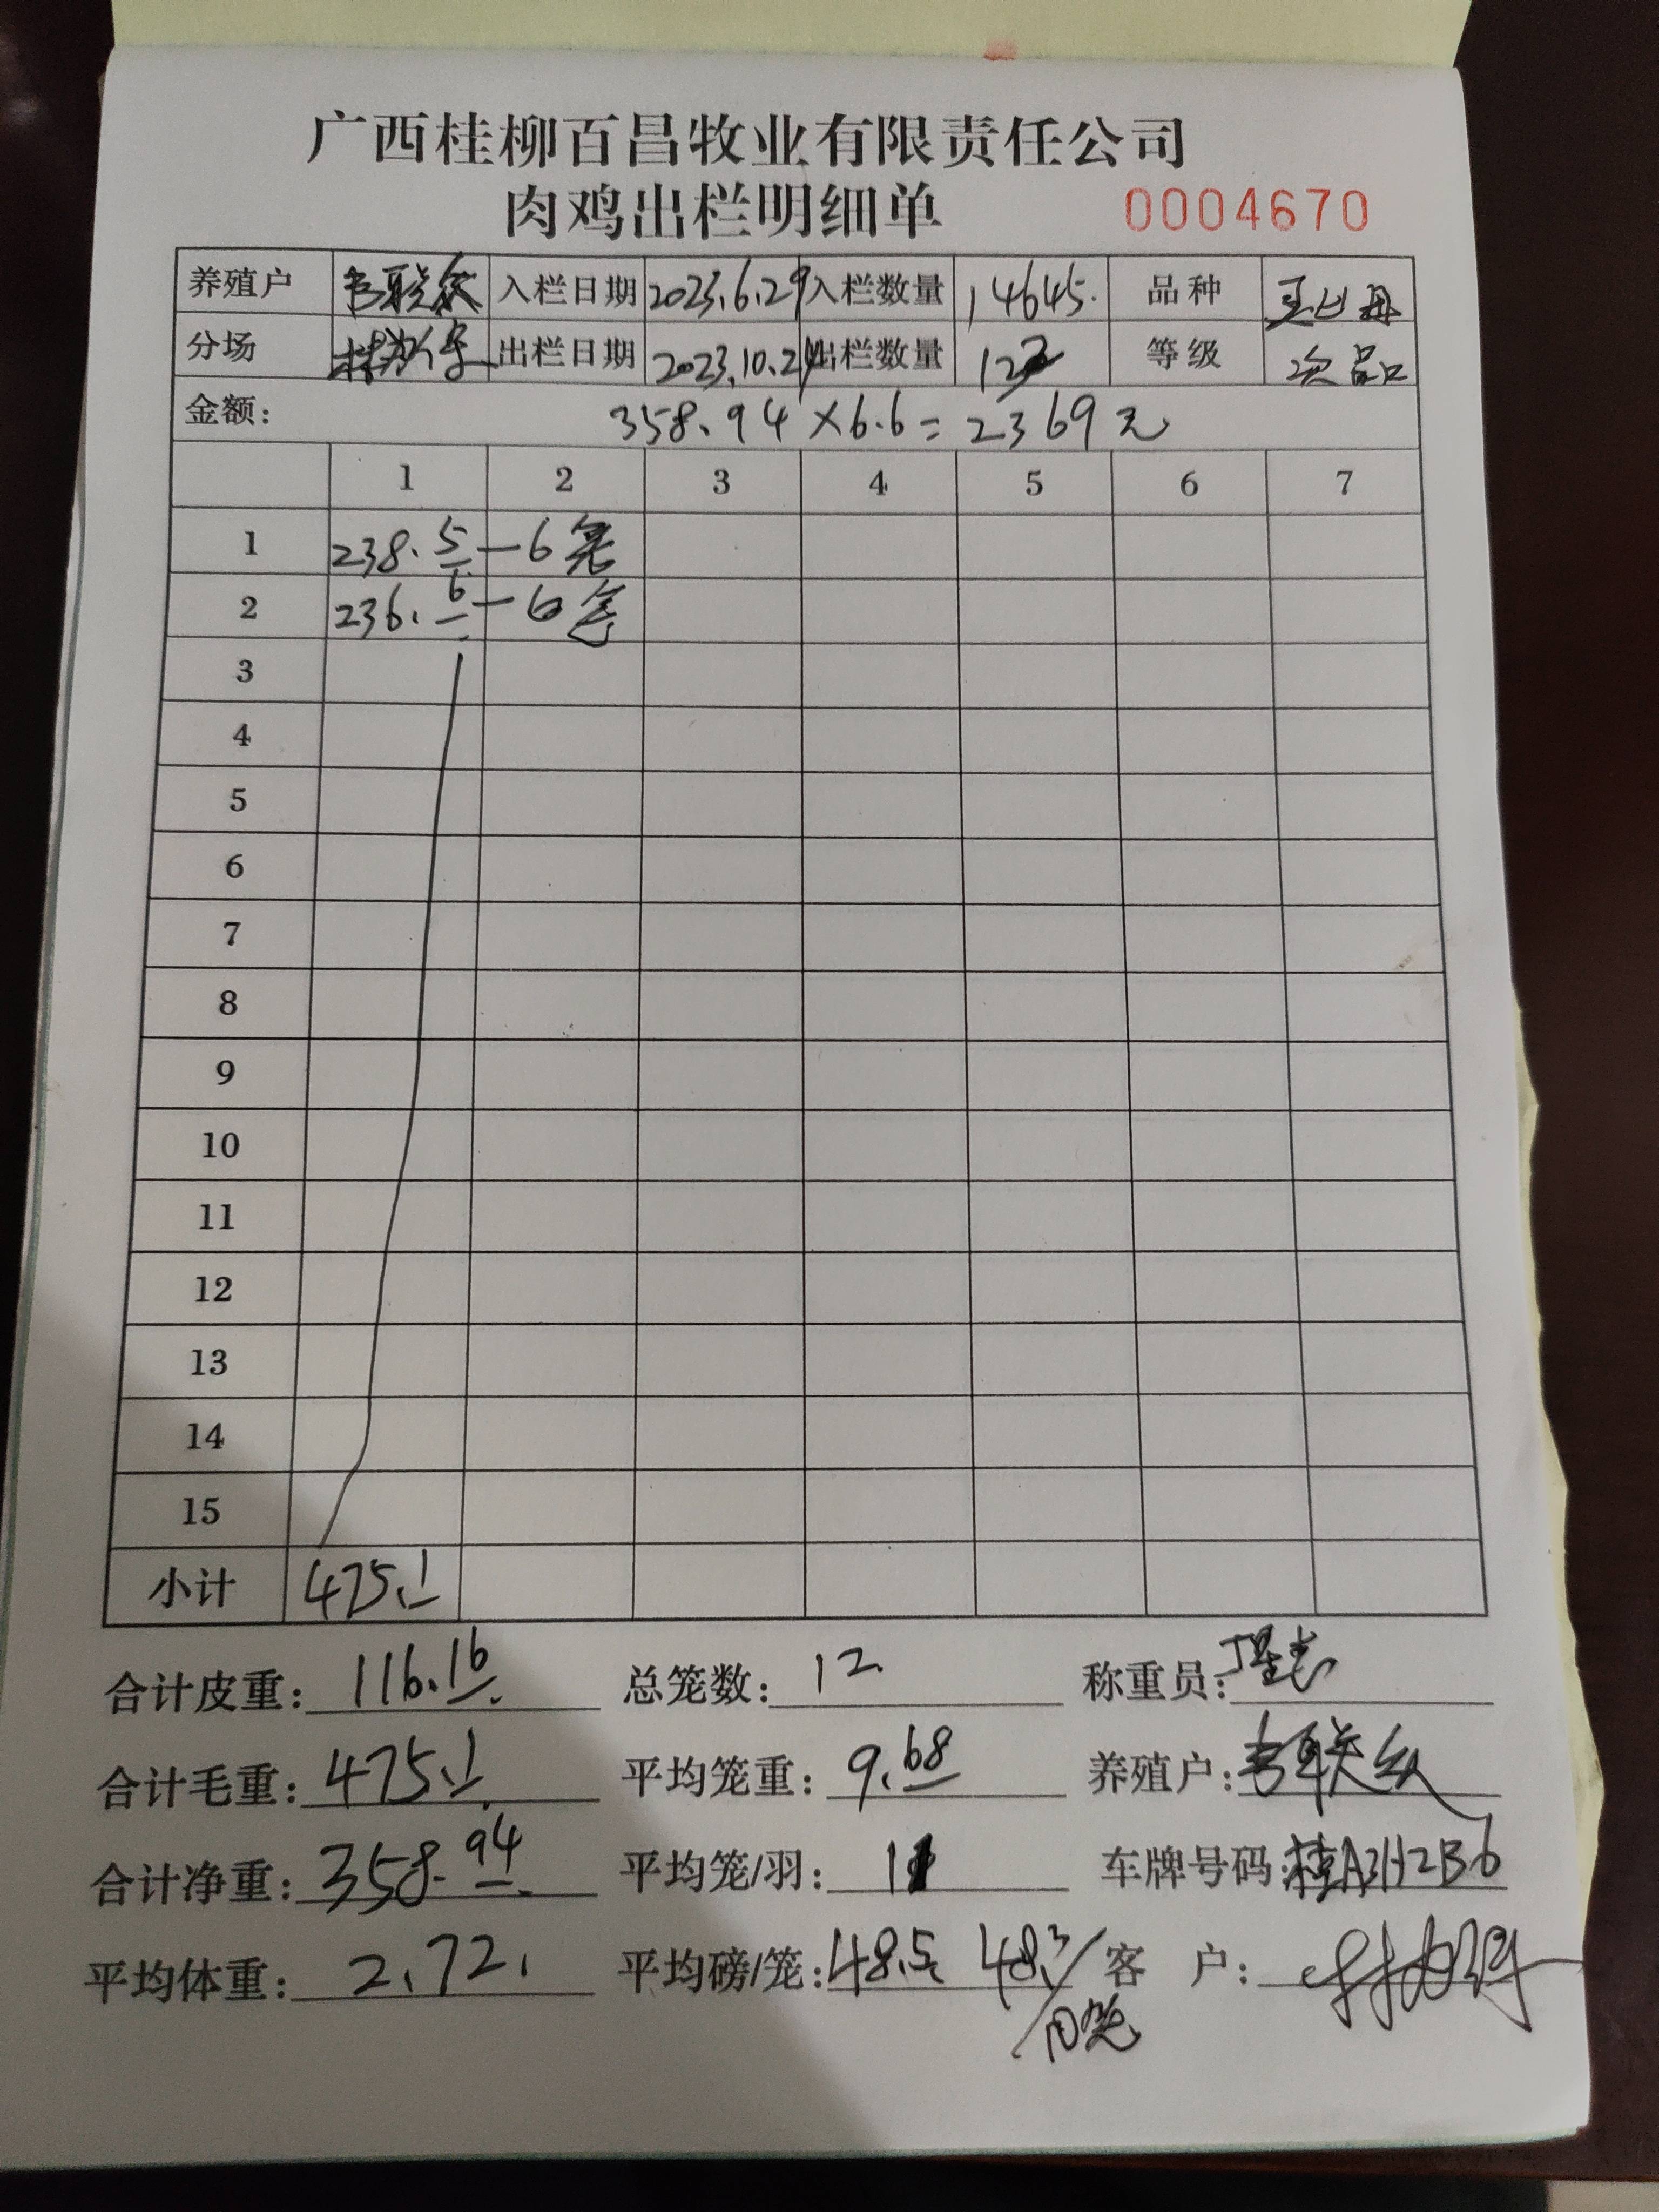 广西桂柳百昌牧业有限责任公司
肉鸡出栏明细单 0004670
养殖户 入栏日期 2023.6.29 入栏数量 14645. 品种
分场 出栏日期 2023.10.24 出栏数量 等级 次品
金额: 358.94×6.6=2369元
1 2 3 4 5 6 7
1 238.5 — 6笼
2 236.6 — 6笼
3
4
5
6
7
8
9
10
11
12
13
14
15
小计 475.1
合计皮重: 116.16 总笼数: 12 称重员:
合计毛重: 475.1 平均笼重: 9.68 养殖户:韦联
合计净重: 358.94 平均笼/羽: 11 车牌号码:桂A3H2B6
平均体重: 2.72 平均磅/笼:48.5 48.3/ 客 户: